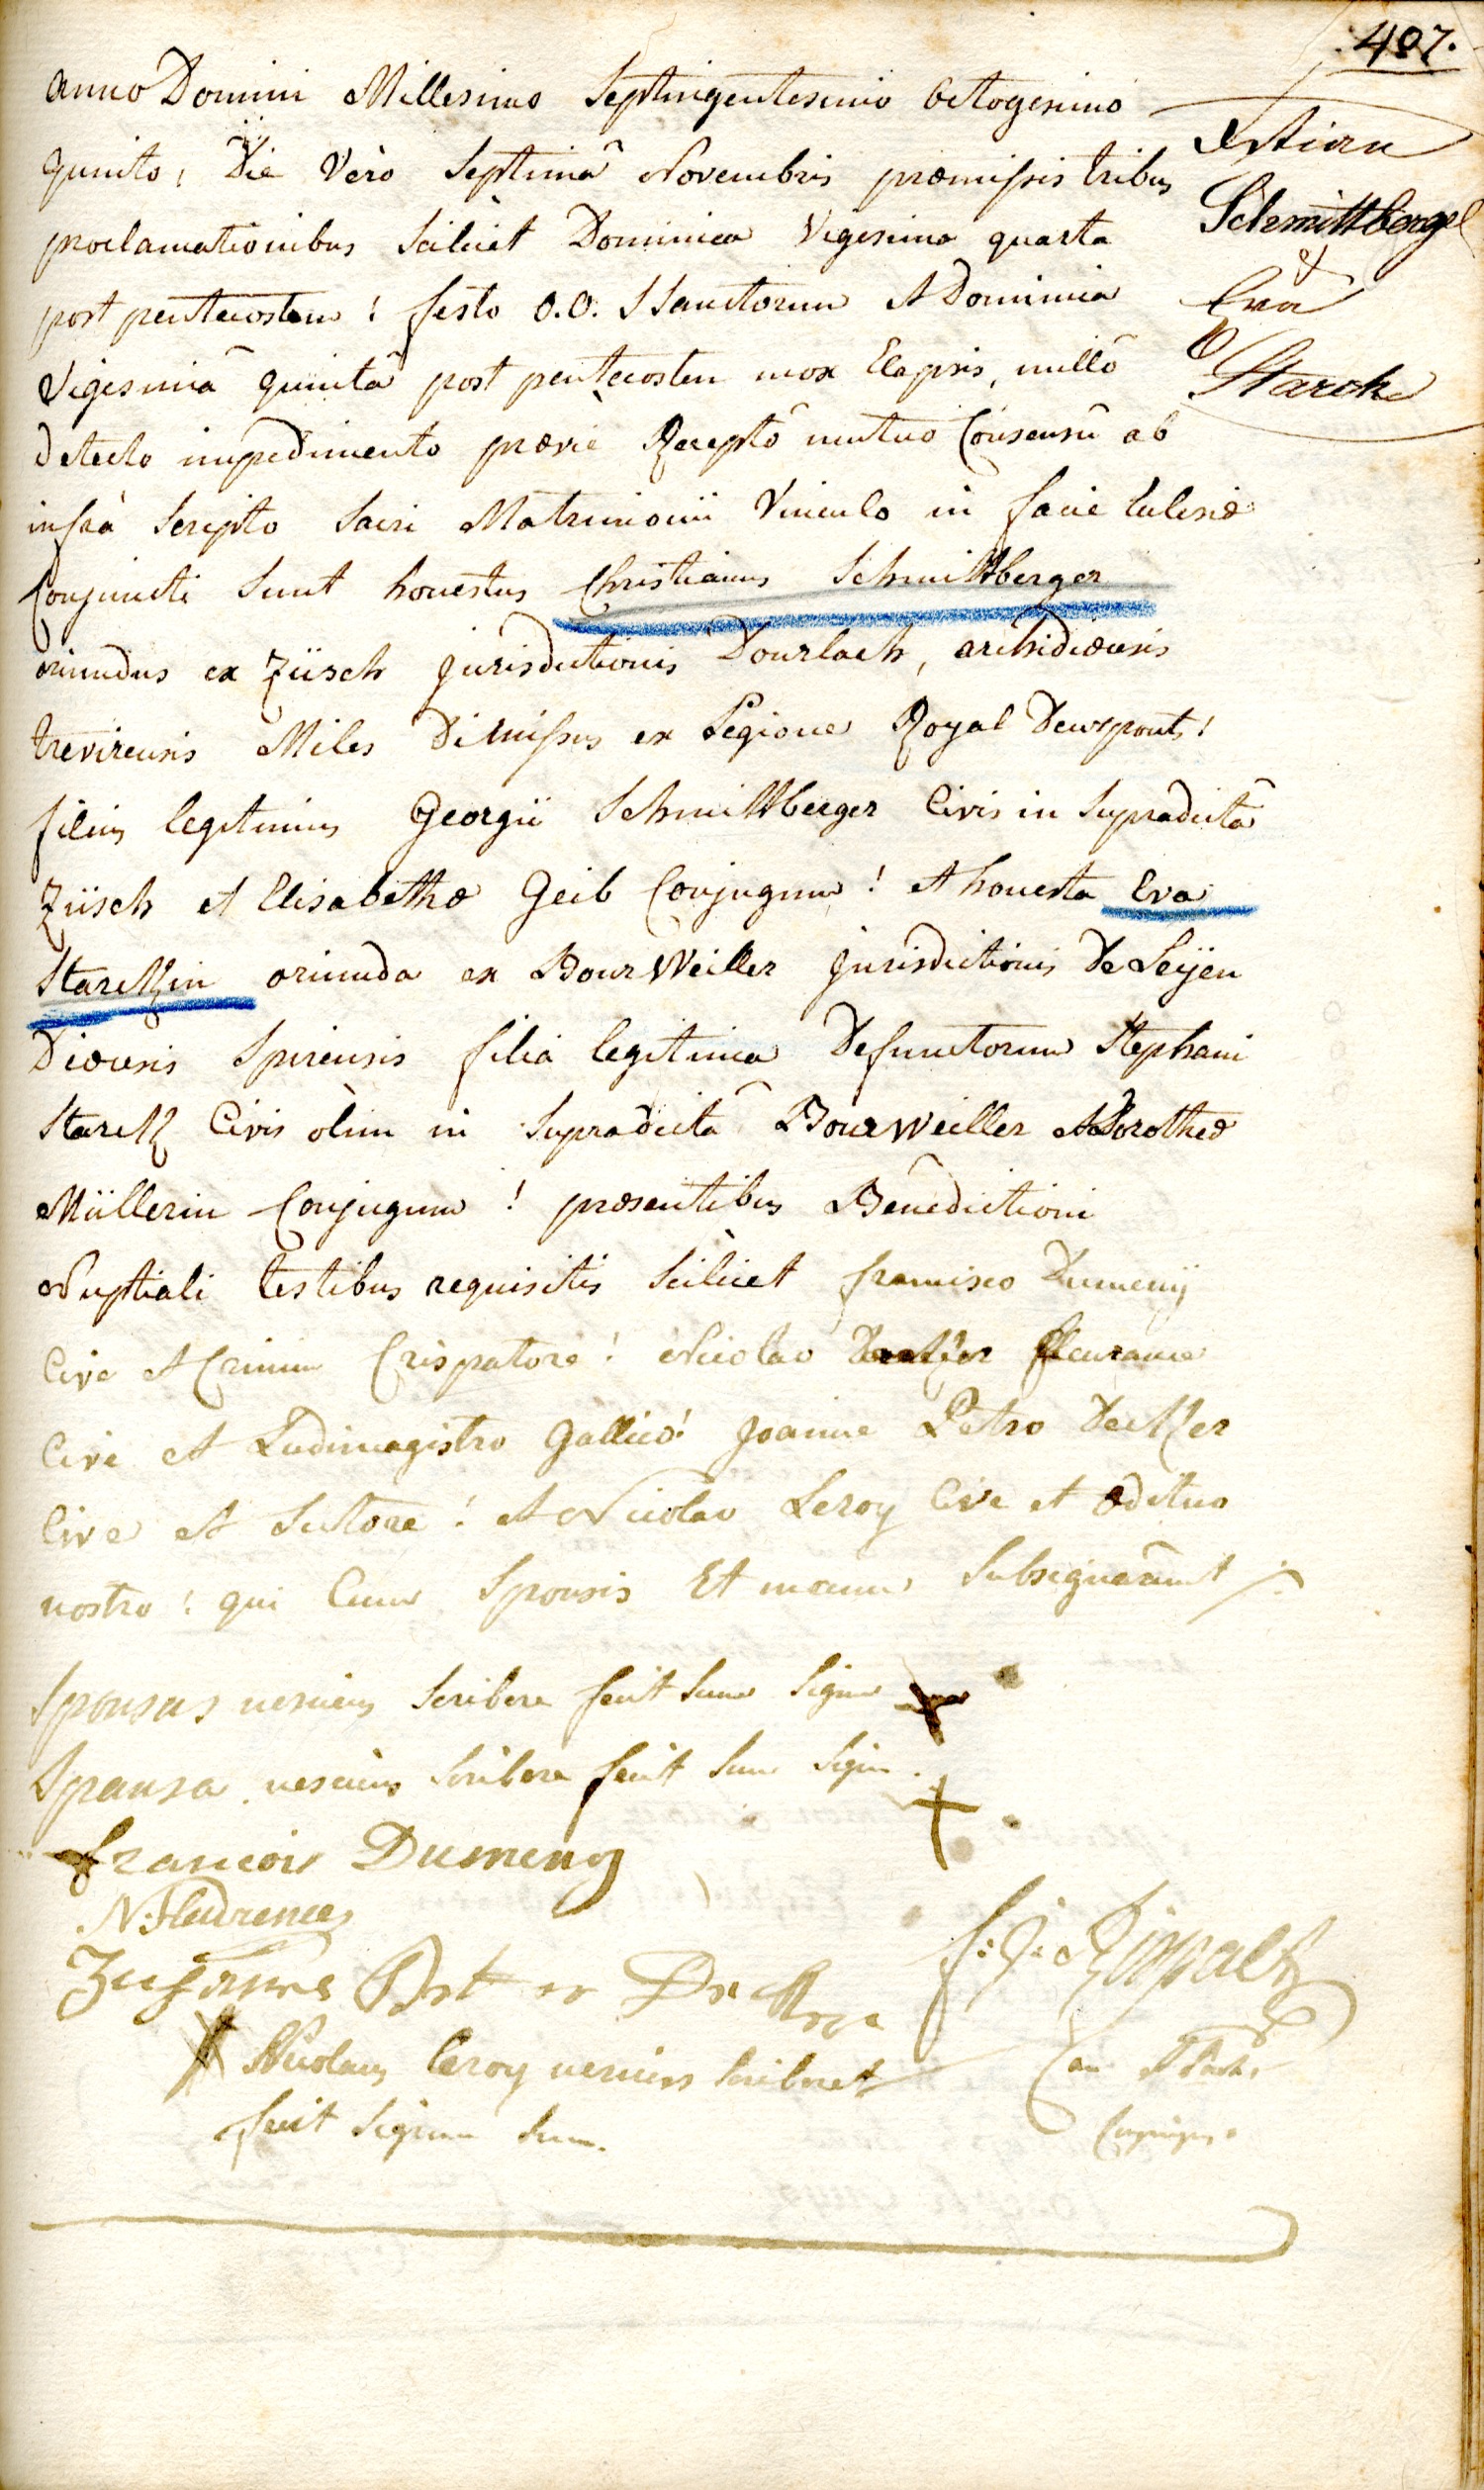 407.
anno Domini Millesimo Septingentesimo octogesimo
quinto, Die Vero Septimâ Novembris præmissis tribus
proclamationibus Scilicèt Dominica Vigesima quarta
post pentecosten ! festo O.O. SSanctorum et Dominica
Vigesimâ quintâ post pentecosten mox Elapsis, nullô
detecto impedimento prævie Receptô mutuo Consensû ab
infrà Scripto Sacri Matrimonii Vinculo in facie Eclesiæ
Conjuncti Sunt honestus Christianus Schmittberger
oriundus ex Züsch jurisdictionis Dourlach, archidiœcesis
trevirensis Miles Dimissus ex Legione Royal Deuxponts !
filius legitimus Georgii Schmittberger Civis in Supradictâ
Züsch et Elisabethæ Geib Conjugum ! et honesta Eva
Starckin oriunda ex BourWeiller jurisdictionis De Leyen
Diœcesis Spirensis filia legitima Defunctorum Stephani
Starck Civis olim in Supradictâ Bourweiller et Dorotheæ
Müllerin Conjugum ! præsentibus Benedictioni
Nuptiali testibus requisitis Scilicet francisco Dumeny
Cive et Crinium Crispatore ! Nicolao fleurance
Cive et Ludimagistro Gallico ! Joanne Petro Decker
Cive et Sutore ! et Nicolao Leroy Cive et ædituo
nostro ! qui Cum Sponsis Et manu Subsignârunt
Sponsus nesciens Scribere fecit Suum Signum
Sponsa nesciens Scribere fecit Suum Signum
francois Dumeny
N: Fleurence
Nicolaus Leroy nesciens scribere
fecit Signum Suum.
Schmittberger
&
Eva
Starck